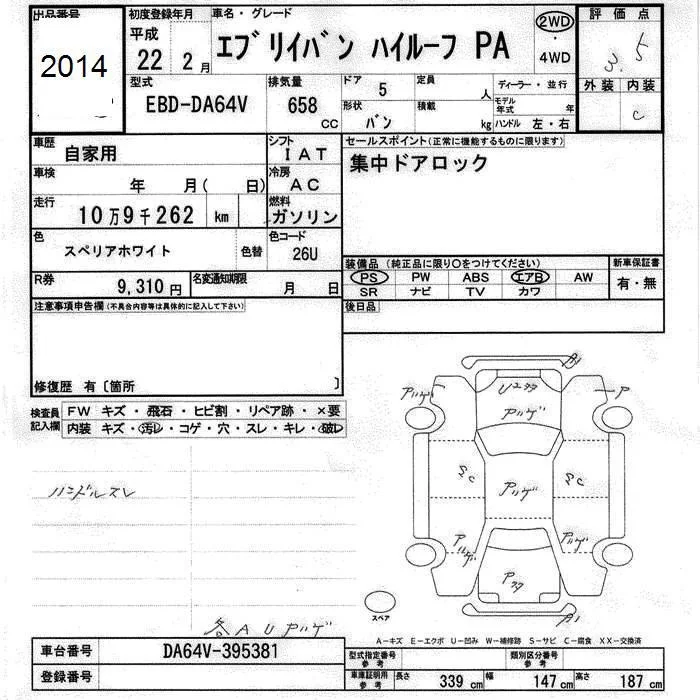 出品番号
2014
初度登録年月
平成
22 2 月
車名・グレード
エブリイバン ハイルーフ PA
2WD
・
4WD
評価点
3.5
外装 内装
C
型式
EBD-DA64V
排気量
658
CC
ドア 5
定員 人
形状 バン
積載 kg
ディーラー・並行
モデル年式 年
ハンドル 左・右
車歴 自家用
シフト IAT
車検 年 月( 日)
冷房 AC
走行 10万9千262 km
燃料 ガソリン
色 スペリアホワイト 色替
色コード 26U
R券 9,310 円
名変通知期限 月 日
セールスポイント(正常に機能するものに限ります)
集中ドアロック
装備品 (純正品に限り○をつけてください)
PS PW ABS エアB AW
SR ナビ TV カワ
新車保証書
有・無
後日品
注意事項申告欄(不具合内容等は具体的に記入して下さい)
修復歴 有〔箇所 〕
検査員記入欄
FW キズ・飛石・ヒビ割・リペア跡・×要
内装 キズ・汚レ・コゲ・穴・スレ・キレ・破レ
ハンドルスレ
各AUアバゲ
A1
P
スペア
A1
A-キズ E-エクボ U-凹み W-補修跡 S-サビ C-腐食 XX-交換済
車台番号 DA64V-395381
登録番号
型式指定番号 参考
類別区分番号 参考
車庫証明用 参考
長さ 339 cm 幅 147 cm 高さ 187 cm